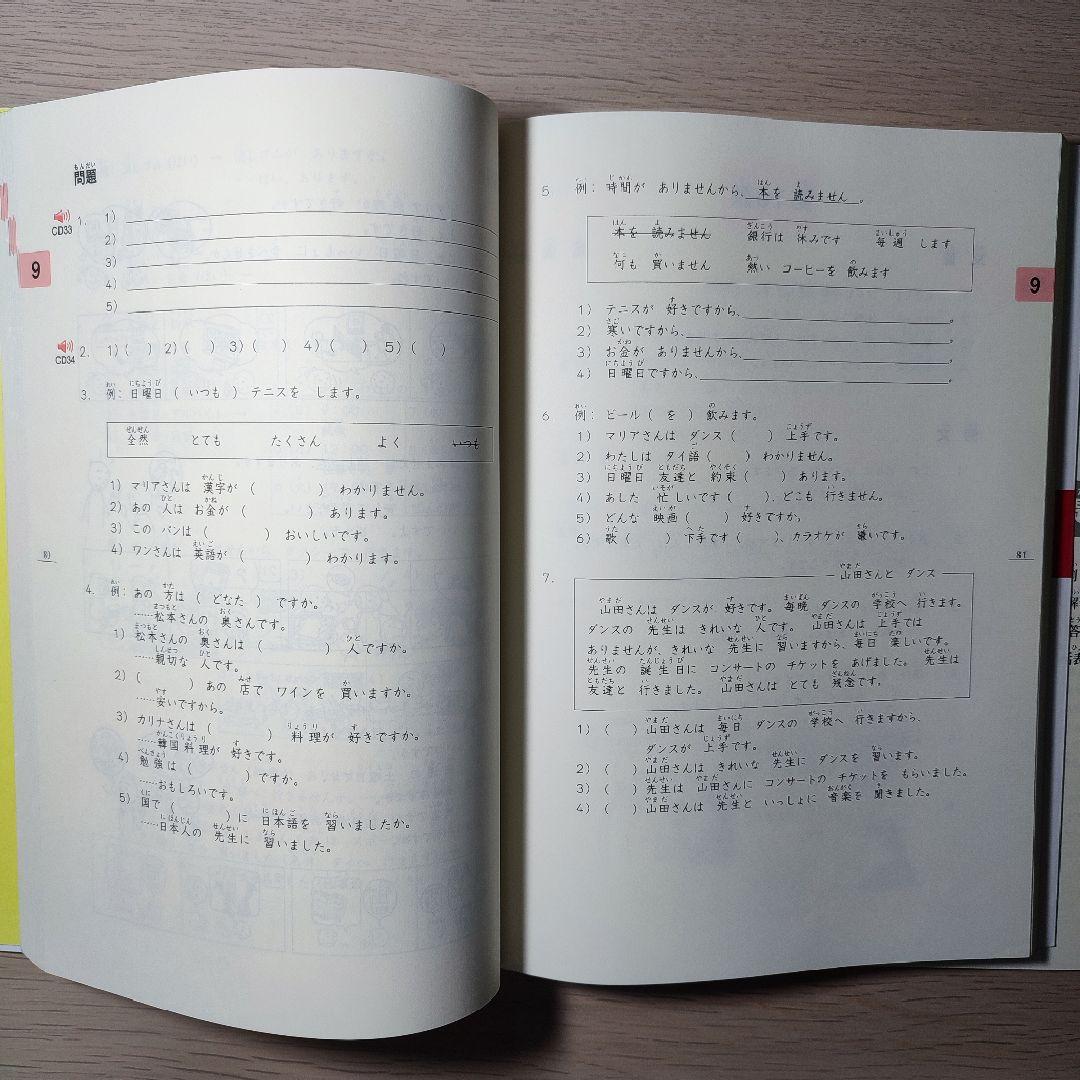 問題
CD33
1. 1)
2)
3)
4)
5)
9
CD34
2. 1) ( ) 2) ( ) 3) ( ) 4) ( ) 5) ( )
3. 例：日曜日（ いつも ）テニスを します。
全然 とても たくさん よく いつも
1) マリアさんは 漢字が（ ）わかりません。
2) あの 人は お金が（ ）あります。
3) この パンは（ ）おいしいです。
4) ワンさんは 英語が（ ）わかります。
80
4. 例：あの 方は（ どなた ）ですか。
……松本さんの 奥さんです。
1) 松本さんの 奥さんは（ ）人ですか。
……親切な 人です。
2)（ ）あの 店で ワインを 買いますか。
……安いですから。
3) カリナさんは（ ）料理が 好きですか。
……韓国料理が 好きです。
4) 勉強は（ ）ですか。
……おもしろいです。
5) 国で（ ）に 日本語を 習いましたか。
……日本人の 先生に 習いました。
5 例：時間が ありませんから、本を 読みません。
本を 読みません 銀行は 休みです 毎週 します
何も 買いません 熱い コーヒーを 飲みます
9
1) テニスが 好きですから、 。
2) 寒いですから、 。
3) お金が ありませんから、 。
4) 日曜日ですから、 。
6 例：ビール（ を ）飲みます。
1) マリアさんは ダンス（ ）上手です。
2) わたしは タイ語（ ）わかりません。
3) 日曜日 友達と 約束（ ）あります。
4) あした 忙しいです（ ）、どこも 行きません。
5) どんな 映画（ ）好きですか。
6) 歌（ ）下手です（ ）、カラオケが 嫌いです。
81
7. 山田さんと ダンス
山田さんは ダンスが 好きです。毎晩 ダンスの 学校へ 行きます。
ダンスの 先生は きれいな 人です。山田さんは 上手では
ありませんが、きれいな 先生に 習いますから、毎日 楽しいです。
先生の 誕生日に コンサートの チケットを あげました。先生は
友達と 行きました。山田さんは とても 残念です。
1)（ ）山田さんは 毎日 ダンスの 学校へ 行きますから、
ダンスが 上手です。
2)（ ）山田さんは きれいな 先生に ダンスを 習います。
3)（ ）先生は 山田さんに コンサートの チケットを もらいました。
4)（ ）山田さんは 先生と いっしょに 音楽を 聞きました。